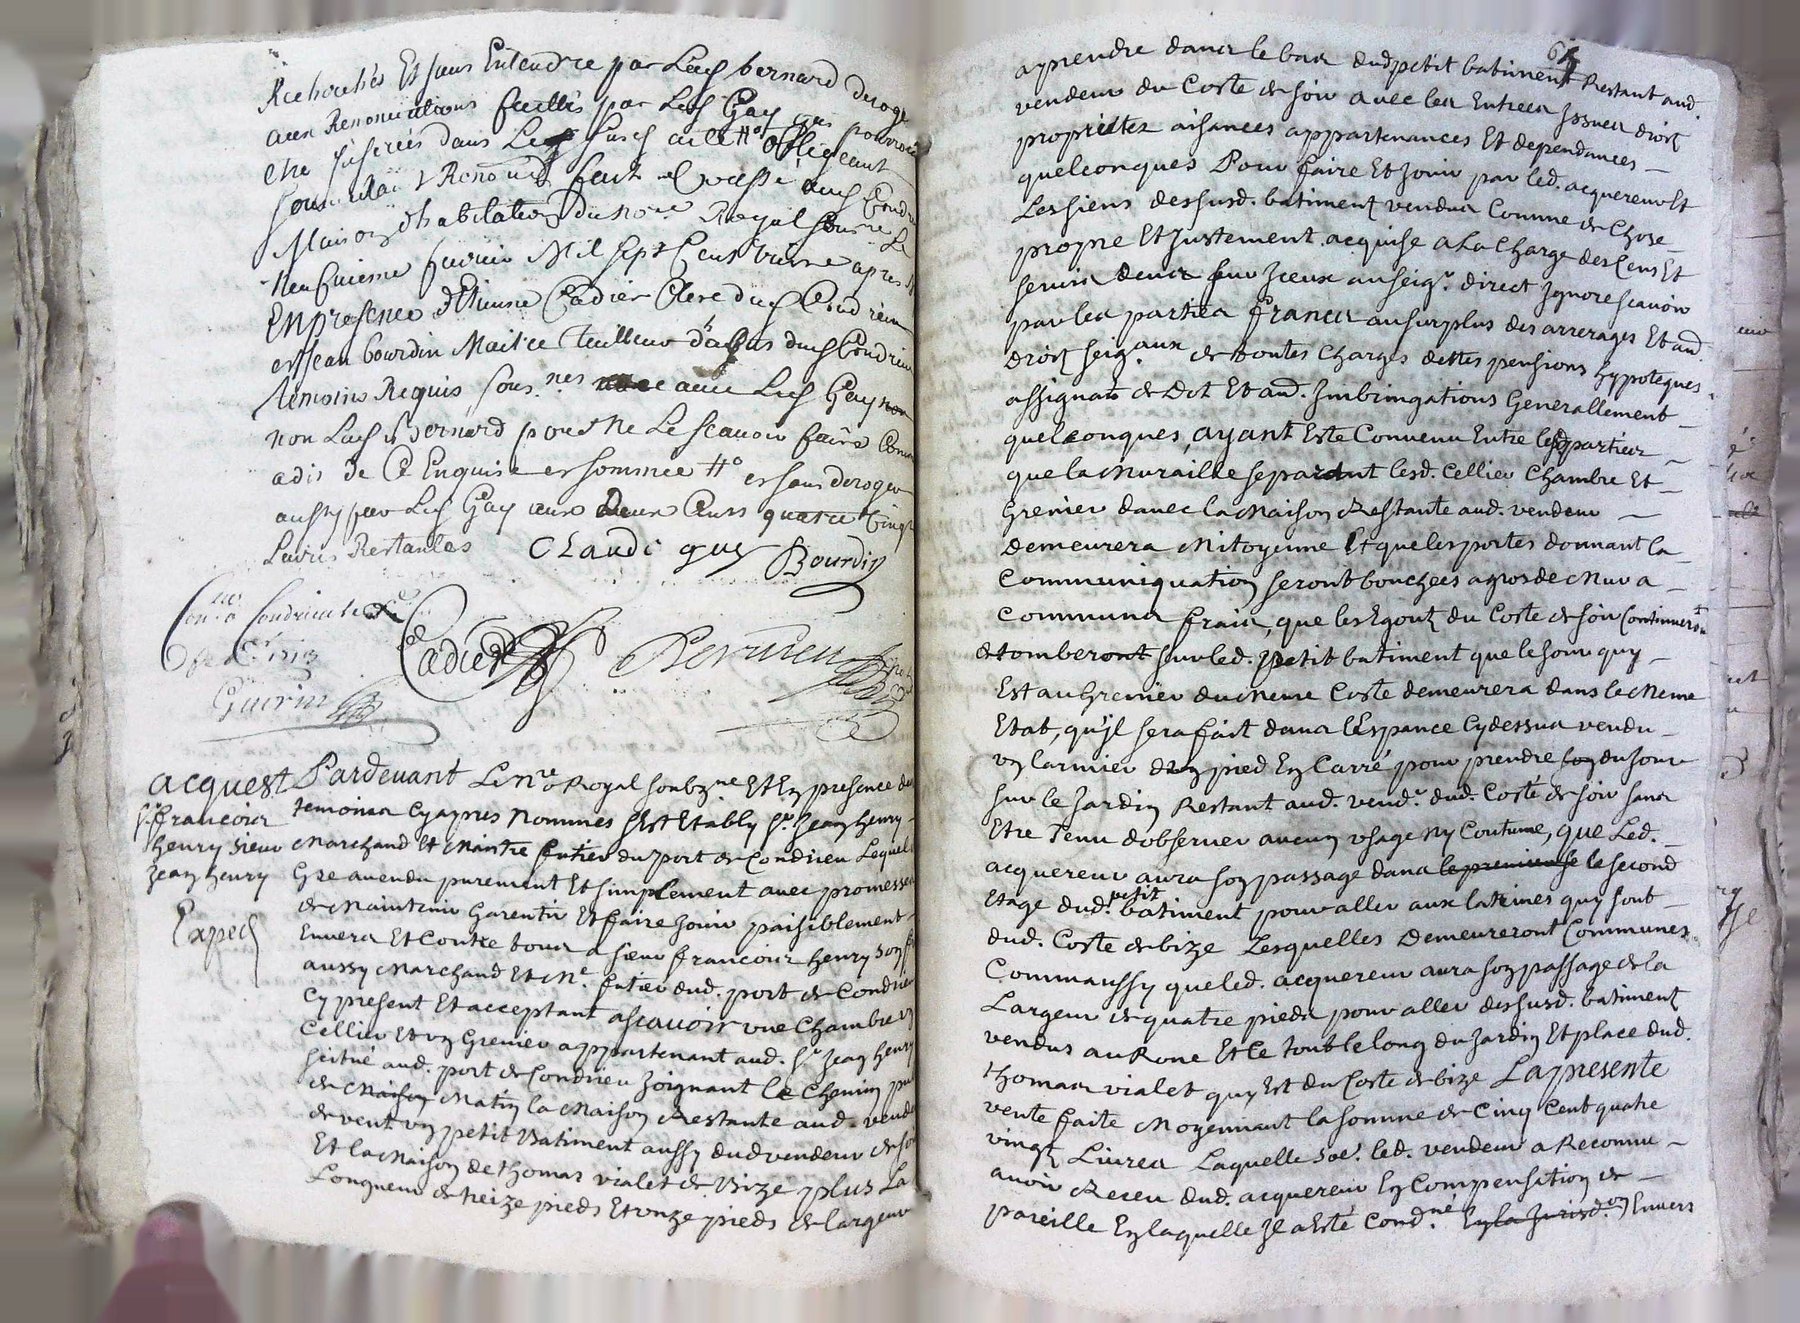 Recherches Et sans Entendre par Led. bernard deroge
aux Renonciations faittes par Led. Gay qui pourroie
etre Inserées dans Led. obligeant
Renon. fait et passé aud. Condrieu
Maison d'habitation du no.re Royal Sous.né Le
neufvieme fevrier Mil sept Cent treize apres
En presence d'Etienne Cadier Clerc dud. Condrieu
et Jean bourdin Maitre tailleur d'abits dud. Condrieu
temoins Requis sous.nes avec Led. Gay non
non Lad. Bernard pour ne Le scavoir faire Comme
a dit de Ce Enquise et sommée et sans deroger
aussy par Led. Gay aux Deux Cents quatre vingt
Livres Restantes Claude gay Bourdin
Con.lé a Condrieu le
1713 Cadier
Guerin
acquest Pardevant Le n.re Royal soubz.ne Et En presence des
s.r francois temoins Cy apres Nommes s'Est Etably s.r Jean henry
henry sieur Marchand Et Maitre futier du port de Condrieu Lequel
Jean henry Gre a vendu purement Et simplement avec promesse
de Maintenir Garentir Et faire Jouir paisiblement
Exped. Envers Et Contre tous a sieur francois henry son
aussy Marchand Et M.e futier dud. port de Condrieu
Cy present Et acceptant ascavoir une Chambre un
Cellier Et un Grenier appartenant aud. s.r Jean henry
scitué aud. port de Condrieu Joignant Le Chemin
de Maison Matin la Maison Restante aud. vendeur
de vent un petit Batiment aussy dud vendeur de soir
Et la Maison de thomas vialet de Bize plus La
Longueur de treize pieds Et onze pieds de largeur
64
a prendre dans le bas dud petit batiment Restant aud.
vendeur du Coste de soir avec les Entrees Issues droit
proprietez aisances appartenances Et dependances
quelconques Pour faire Et Jouir par led. acquereur Et
Les siens des susd. batiment vendus Comme de Chose
propre Et Justement acquise a La Charge des Cens Et
servis deus sur Jceux au seig.r direct Ignore scavoir
par les parties francs au surplus des arrerages Et aud.
droit seig.aux de toutes Charges dettes pensions hypoteques
assignats de Dot Et aud. Imbringations Generallement
quelconques, ayant Este Convenu Entre lesd parties
que la Muraille separant lesd. Cellier Chambre Et
Grenier d'avec la Maison Restante aud. vendeur
Demeurera Mitoyenne Et que les portes donnant la
Communiquation seront bouchees a gros de Mur a
Communs frais, que les Egout du Coste de soir Continueront
de tomberont sur led. petit batiment que le Jour quy
Est au Grenier du Meme Coste demeurera dans le Meme
Etat, qu'Jl sera fait dans l'Espance Cy dessus vendu
un larmier d'un pied En Carré pour prendre son du Jour
sur le Jardin Restant aud. vend.r dud. Coste de soir sans
Etre Tenu d'observer aucun usage Ny Coutume, que Led.
acquereur aura son passage dans le premier se le second
Etage dud. petit batiment pour aller aux latrines quy sont
dud. Coste de bize Lesquelles Demeureront Communes
Comm'aussy que led. acquereur aura son passage de la
Largeur de quatre pieds pour aller des susd. batiment
vendus au Rone Et Ce tout le long du Jardin Et place dud.
thomas vialet quy Est du Coste de bize La presente
vente faite Moyennant la somme de Cinq Cent quatre
vingt Livres Laquelle so.e led. vendeur a Reconnu
avoir Receu dud. acquereur En Compensation de
pareille En laquelle Jl a Esté Cond.né En la Jurisd.on Envers